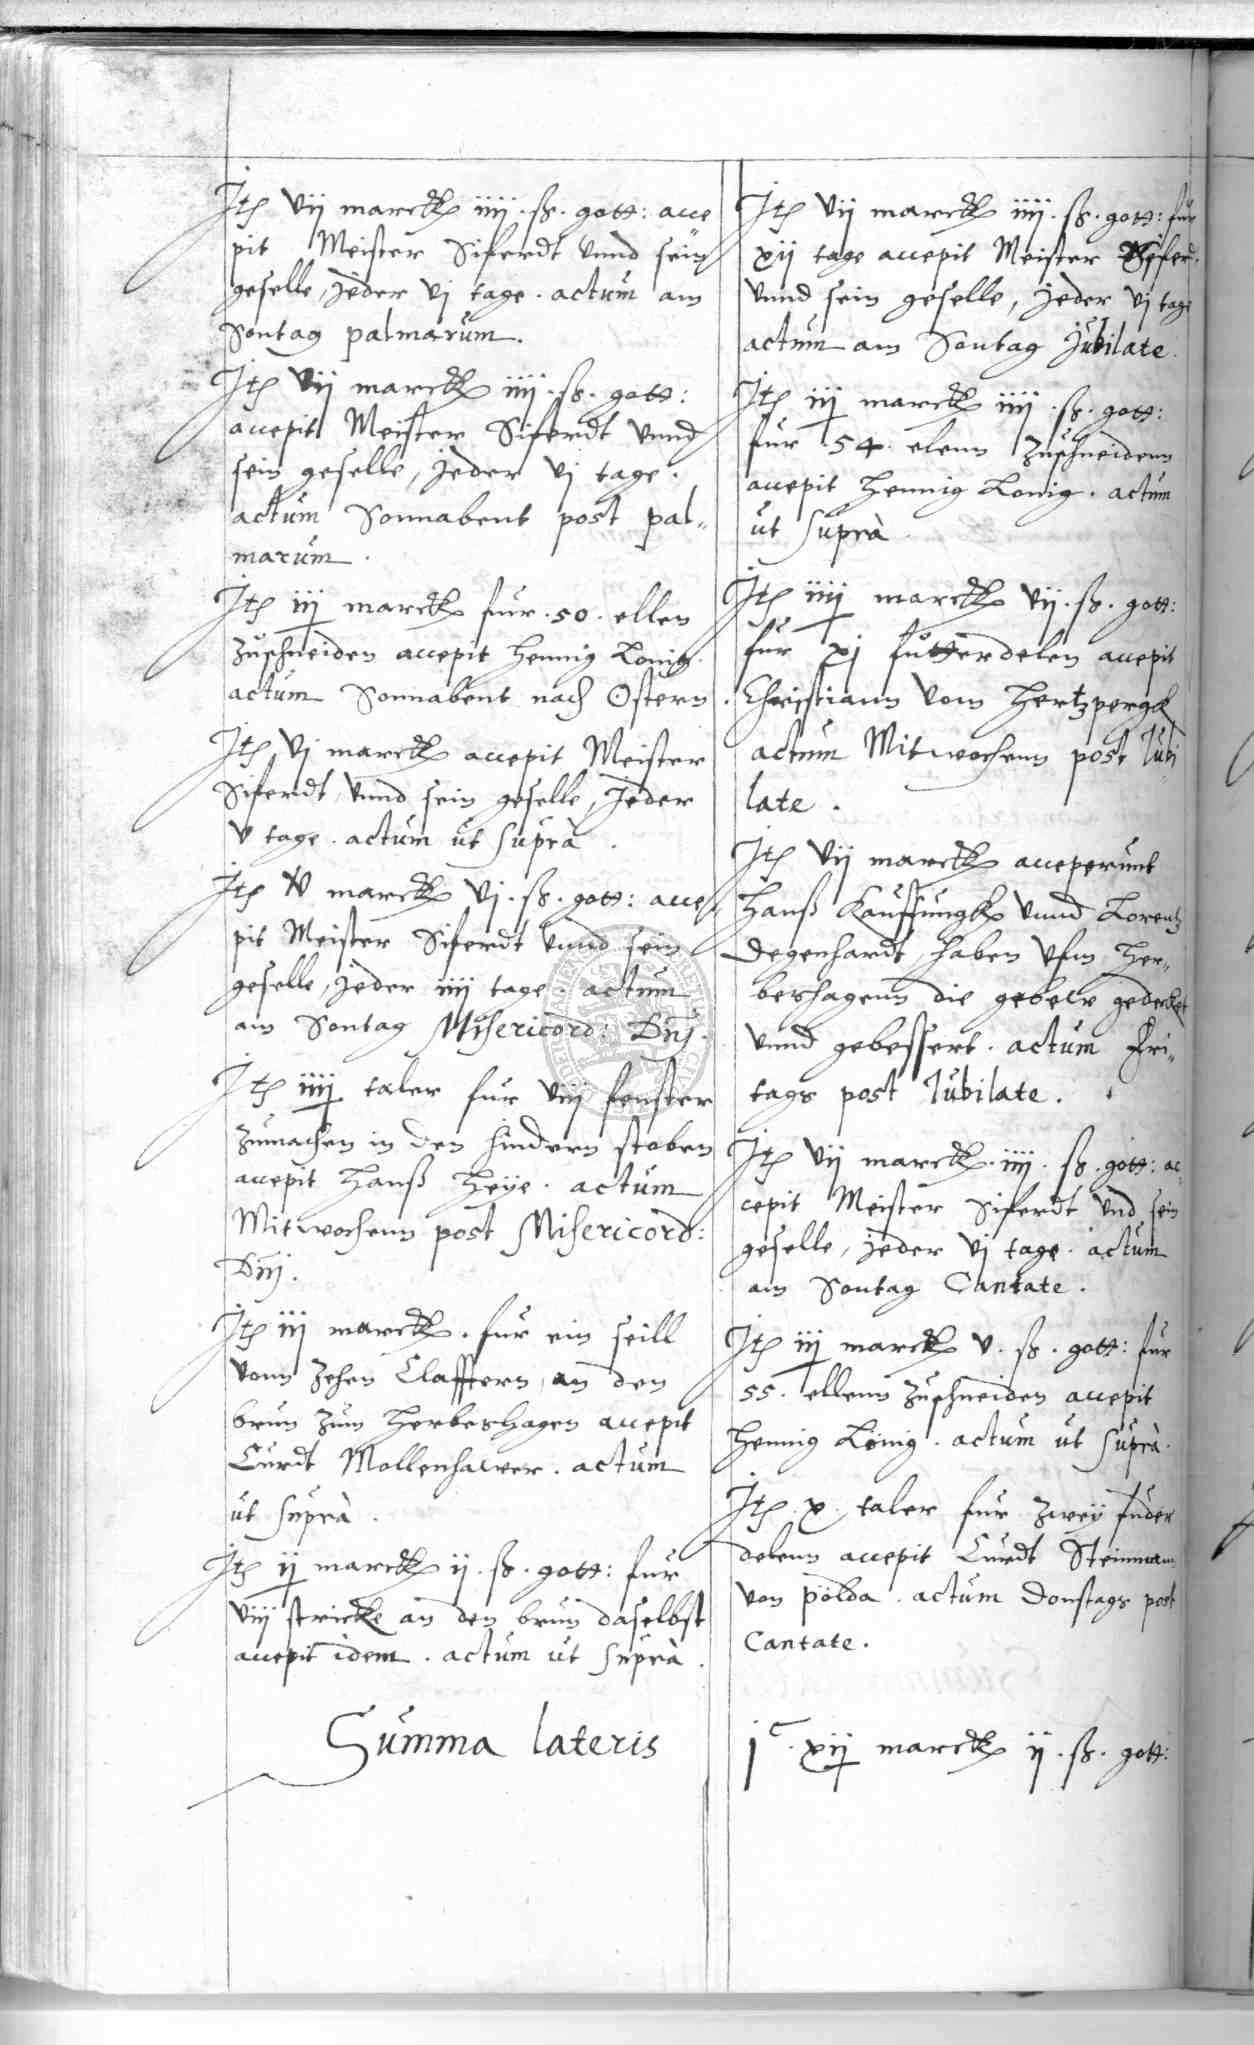 Jtem vij marck iiij . ß . gott: acce
pit Meister Siferdt vnnd sein
geselle, jeder vj tage . actum am
Sontag palmarum .
Jtem vij marck iiij . ß . gott:
accepit Meister Siferdt vnnd
sein geselle, jeder vj tage .
actum Sonnabent post pal„
marum .
Jtem iij marck fur . 50 . ellen
zuschneiden accepit Hennig Konig .
actum Sonnabent nach Ostern .
Jtem vj marck accepit Meister
Siferdt, vnnd sein geselle, Jeder
v tage . actum ut suprà .
Jtem v marck vj . ß . gott: acce„
pit Meister Siferdt vnnd sein
geselle, jeder iiij tage . actum
am Sontag Misericord: Dnj .
Jtem iiij taler fur viij fenster
zumachen in den hindern stoben
accepit Hanß Heÿe . actum
Mitwochenn post Misericord:
Dnj .
Jtem iij marck . fur ein seill
vonn zehen Clafftern, an den
brun zum Herbeshagen accepit
Curdt Mollenhawer . actum
ut suprà .
Jtem ij marck ij . ß . gott: fur
viij stricke an den brun daselbst
accepit idem . actum ut suprà .
Summa lateris
Jtem vij marck iiij . ß . gott: fur
xij tage accepit Meister
vnnd sein geselle, jeder vj tage
actum am Sontag Jubilate .
Jtem iij marck iiij . ß . gott:
fur . 54 . elenn zuschneidenn
accepit Hennig Konig . actum
ut suprà .
Jtem iiij marck vij . ß . gott:
fur xj futterdelen accepit
Christiann vom Hertzpergk
actum Mitwochenn post Jubi
late .
Jtem vij marck acceperunt
Hanß Kauffungk vnnd Lorentz
Degenhardt, haben vfm Her„
beshagenn die gebew gedecket
vnnd gebessert . actum Fri„
tags post Jubilate .
Jtem vij marck . iiij . ß . gott: ac
cepit Meister Siferdt vnd sein
geselle, jeder vj tage . actum
am Sontag Cantate .
Jtem iij marck v . ß . gott: fur
55 . ellenn zuschneiden accepit
Hennig König . actum ut suprà .
Jtem . x . taler fur zweÿ fuder
delenn accepit Curdt Steinman
von pölda . actum Donstags post
Cantate .
jc . xij marck ij . ß . gott: